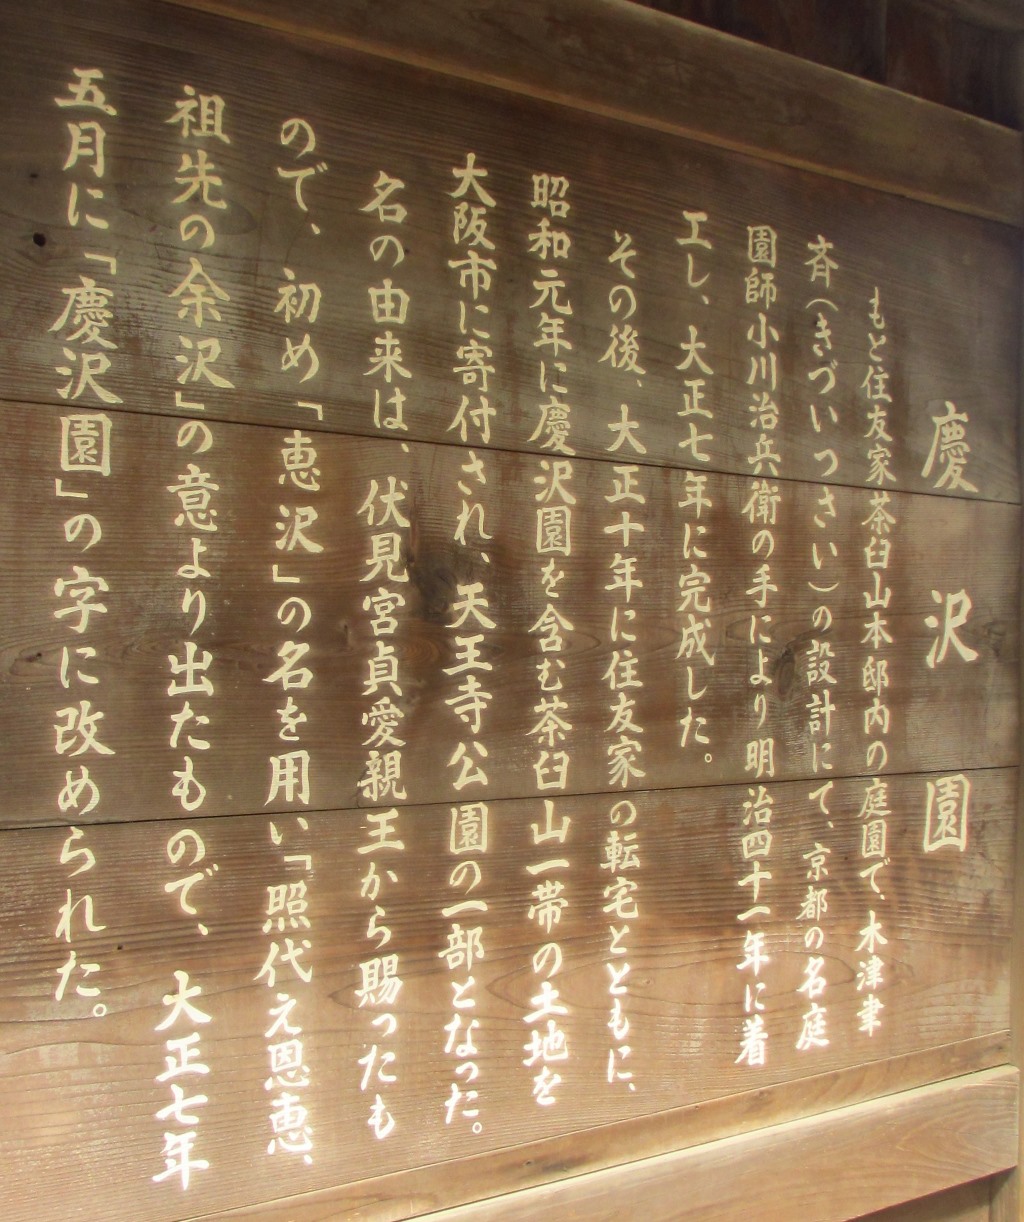 慶沢園
もと住友家茶臼山本邸内の庭園で、木津聿
斉(きづいつさい)の設計にて、京都の名庭
園師小川治兵衛の手により明治四十一年に着
工し、大正七年に完成した。
その後、大正十年に住友家の転宅とともに、
昭和元年に慶沢園を含む茶臼山一帯の土地を
大阪市に寄付され、天王寺公園の一部となった。
名の由来は、伏見宮貞愛親王から賜ったも
ので、初め「恵沢」の名を用い「照代え恩恵、
祖先の余沢」の意より出たもので、大正七年
五月に「慶沢園」の字に改められた。